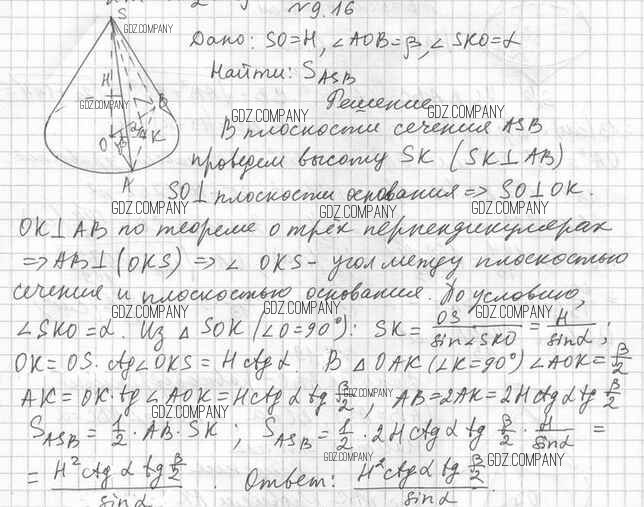 №9.16
S
GDZ.COMPANY
Дано: SO=H, ∠AOB=β, ∠SKO=α
Найти: S_ASB
H
GDZ.COMPANY
B
O
β
K
A
Решение
GDZ.COMPANY
GDZ.COMPANY
В плоскости сечения ASB
проведем высоту SK (SK⊥AB)
GDZ.COMPANY
SO⊥плоскости основания => SO⊥OK.
GDZ.COMPANY GDZ.COMPANY GDZ.COMPANY
OK⊥AB по теореме о трех перпендикулярах
=> AB⊥(OKS) => ∠OKS - угол между плоскостью
GDZ.COMPANY GDZ.COMPANY
сечения и плоскостью основания. По условию,
GDZ.COMPANY GDZ.COMPANY
∠SKO=α. Из △SOK (∠O=90°): SK = OS/sin∠SKO = H/sinα;
GDZ.COMPANY
OK = OS·ctg∠OKS = Hctgα. В △OAK (∠K=90°) ∠AOK = β/2
AK = OK·tg∠AOK = Hctgα tg β/2, AB = 2AK = 2Hctgα tg β/2
GDZ.COMPANY
GDZ.COMPANY
S_ASB = 1/2 · AB · SK; S_ASB = 1/2 · 2Hctgα tg β/2 · H/sinα =
GDZ.COMPANY GDZ.COMPANY
= H²ctgα tg β/2 / sinα. Ответ: H²ctgα tg β/2 / sinα.